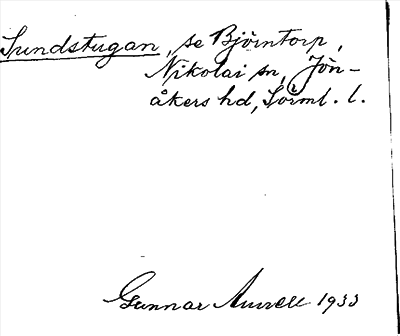 Sundstugan, se Björntorp,
Nikolai sn, Jön-
åkers hd, Sörml. l.
Gunnar Aurell 1933